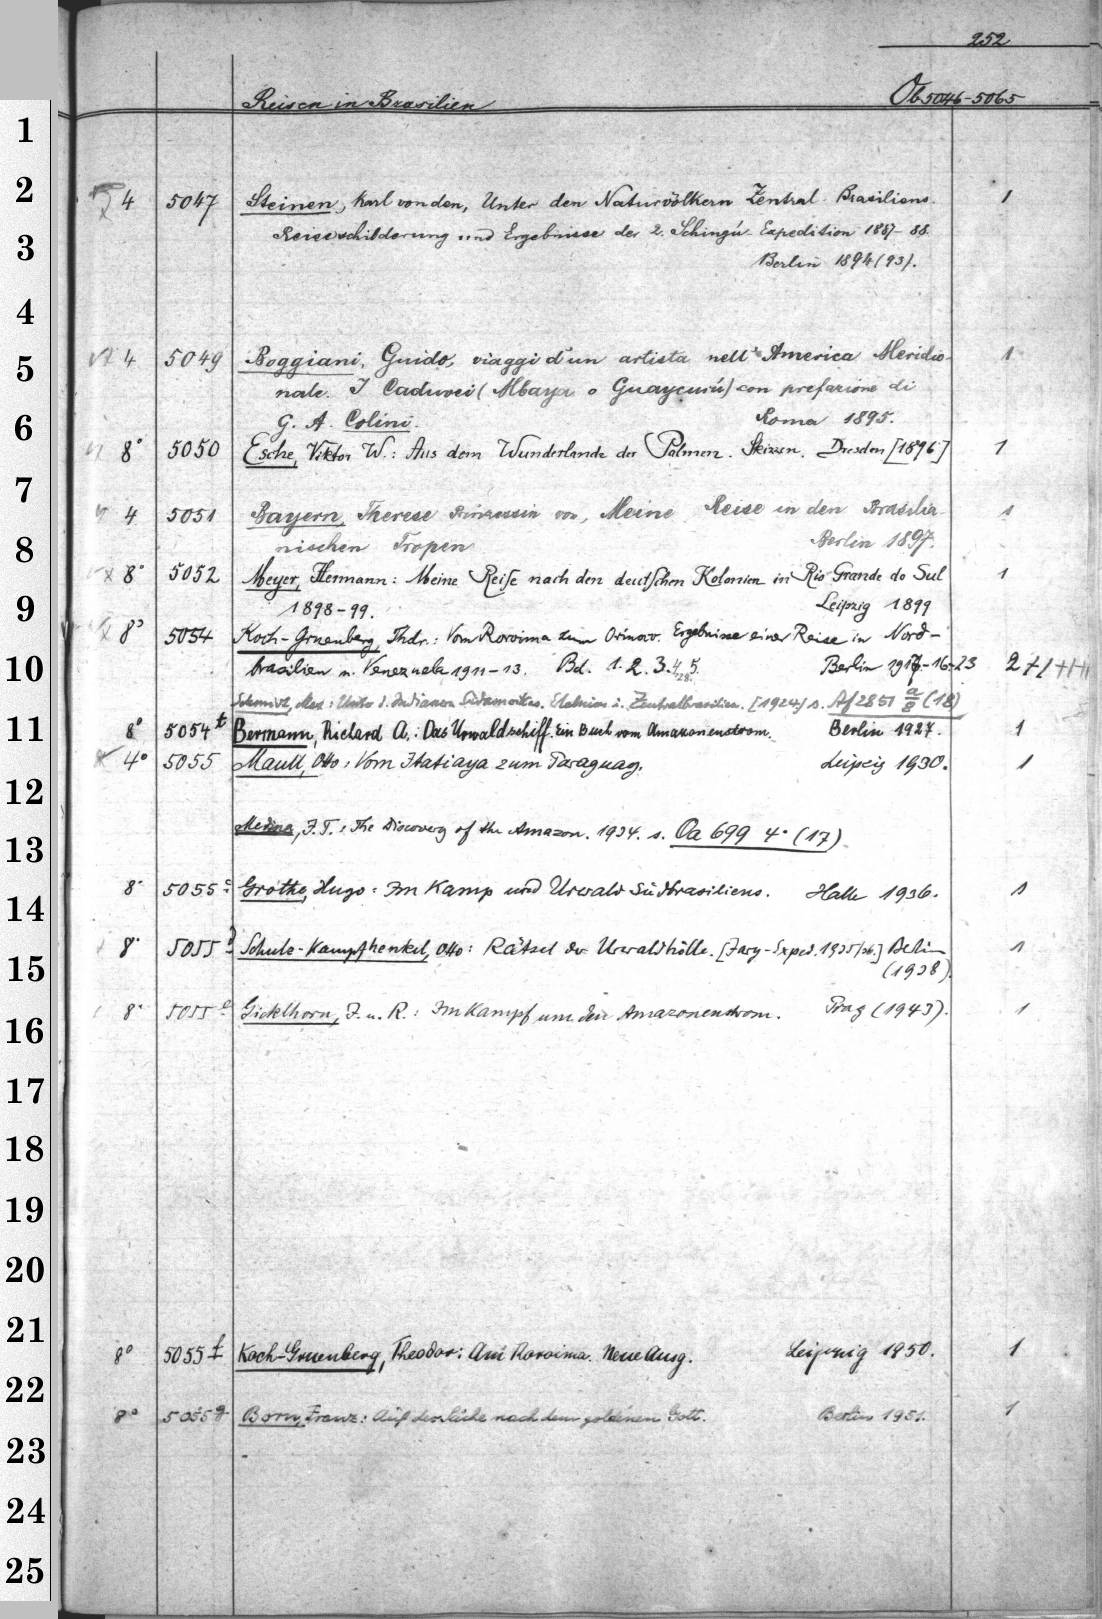 252
Reisen in Brasilien Ob 5046-5065
1
2
3
4
5
6
7
8
9
10
11
12
13
14
15
16
17
18
19
20
21
22
23
24
25
4 5047 Steinen, Karl von den, Unter den Naturvölkern Zentral-Brasiliens. 1
Reiseschilderung und Ergebnisse der 2. Schingú-Expedition 1887-88.
Berlin 1894 (93).
4 5049 Boggiani, Guido, viaggi d'un artista nell'America Meridio- 1
nale. I Caduvei (Mbaya o Guaycurú) con prefazione di
G. A. Colini. Roma 1895.
8° 5050 Esche, Viktor W.: Aus dem Wunderlande der Palmen. Skizzen. Dresden [1896] 1
4 5051 Bayern, Therese Prinzessin von, Meine Reise in den Brasilia- 1
nischen Tropen Berlin 1897.
8° 5052 Meyer, Hermann: Meine Reise nach den deutschen Kolonien in Rio Grande do Sul 1
1898-99. Leipzig 1899
8° 5054 Koch-Gruenberg, Thdr.: Vom Roroima zum Orinoco. Ergebnisse einer Reise in Nord-
brasilien u. Venezuela 1911-13. Bd. 1. 2. 3. 4. 5. Berlin 1917-16-23 2+1+1+1
Schmidt, Max: Unter d. Indianern Südamerikas. Erlebnisse i. Zentralbrasilien. [1924] s. Af 2851 a/8 (18)
8° 5054 t Bermann, Richard A.: Das Urwaldschiff. Ein Buch vom Amazonenstrom. Berlin 1927. 1
4° 5055 Maull, Otto: Vom Itatiaya zum Paraguay. Leipzig 1930. 1
Medina, J.T.: The Discovery of the Amazon. 1934. s. Oa 699 4° (17)
8° 5055 c Grothe, Hugo: Im Kamp und Urwald Südbrasiliens. Halle 1936. 1
8° 5055 d Schulz-Kampfhenkel, Otto: Rätsel der Urwaldhölle. [Jary-Exped. 1935/36.] Berlin 1
(1938).
8° 5055 e Gicklhorn, J. u. R.: Im Kampf um den Amazonenstrom. Prag (1943). 1
8° 5055 f Koch-Gruenberg, Theodor: Am Roroima. Neue Ausg. Leipzig 1950. 1
8° 5055 g Born, Franz: Auf der Suche nach dem goldenen Gott. Berlin 1951. 1